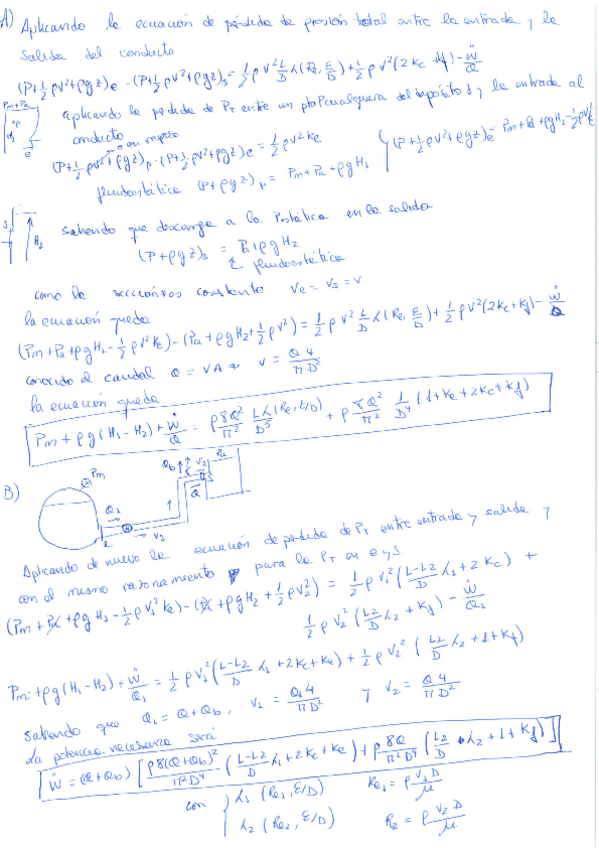 A) Aplicando la ecuación de pérdida de presión total entre la entrada y la
salida del conducto
(P+½ρV²+ρgz)e - (P+½ρV²+ρgz)s = ½ρV² L/D λ(Re, E/D) + ½ρV²(2Kc + Kf) - Ẇ/Q
Pm+Pa
op
H1
e
aplicando la pérdida de PT entre un pto P cualquiera del depósito 1 y la entrada al
conducto en reposo
(P+½ρV²+ρgz)P - (P+½ρV²+ρgz)e = ½ρV²Ke
(P+½ρV²+ρgz)e = Pm+Pa+ρgH1-½ρV²Ke
fluidoestática (P+ρgz)P = Pm+Pa+ρgH1
S
H2
sabiendo que descarga a la Pestática en la salida
(P+ρgz)s = Pa+ρgH2
fluidoestática
como la sección es constante Ve = Vs = V
la ecuación queda
(Pm+Pa+ρgH1-½ρV²Ke) - (Pa+ρgH2+½ρV²) = ½ρV² L/D λ(Re, E/D) + ½ρV²(2Kc+Kf) - Ẇ/Q
conocido el caudal Q = VA → V = Q4/πD²
la ecuación queda
Pm + ρg(H1-H2) + Ẇ/Q = ρ8Q²/π² Lλ(Re, E/D)/D⁵ + ρ8Q²/π² 1/D⁴ (1+Ke+2Kc+Kf)
B)
Pm
Q1
e
V1
Qb
V2
Q
S
Pa
Aplicando de nuevo la ecuación de pérdida de PT entre entrada y salida y
con el mismo razonamiento para la PT en e y s
(Pm+Pa+ρgH1-½ρV1²Ke) - (Pa+ρgH2+½ρV2²) = ½ρV1²(L-L2/D λ1+2Kc) +
½ρV2²(L2/D λ2+Kf) - Ẇ/Q1
Pm+ρg(H1-H2)+Ẇ/Q1 = ½ρV1²(L-L2/D λ1+2Kc+Ke) + ½ρV2²(L2/D λ2+1+Kf)
sabiendo que Q1 = Q+Qb, V1 = Q14/πD² y V2 = Q4/πD²
La potencia necesaria será
Ẇ = (Q+Qb) [ρ8(Q+Qb)²/π²D⁴ (L-L2/D λ1+2Kc+Ke) + ρ8Q/π²D⁴ (L2/D λ2+1+Kf)]
con λ1 (Re1, E/D) Re1 = ρV1D/μ
λ2 (Re2, E/D) R2 = ρV2D/μ